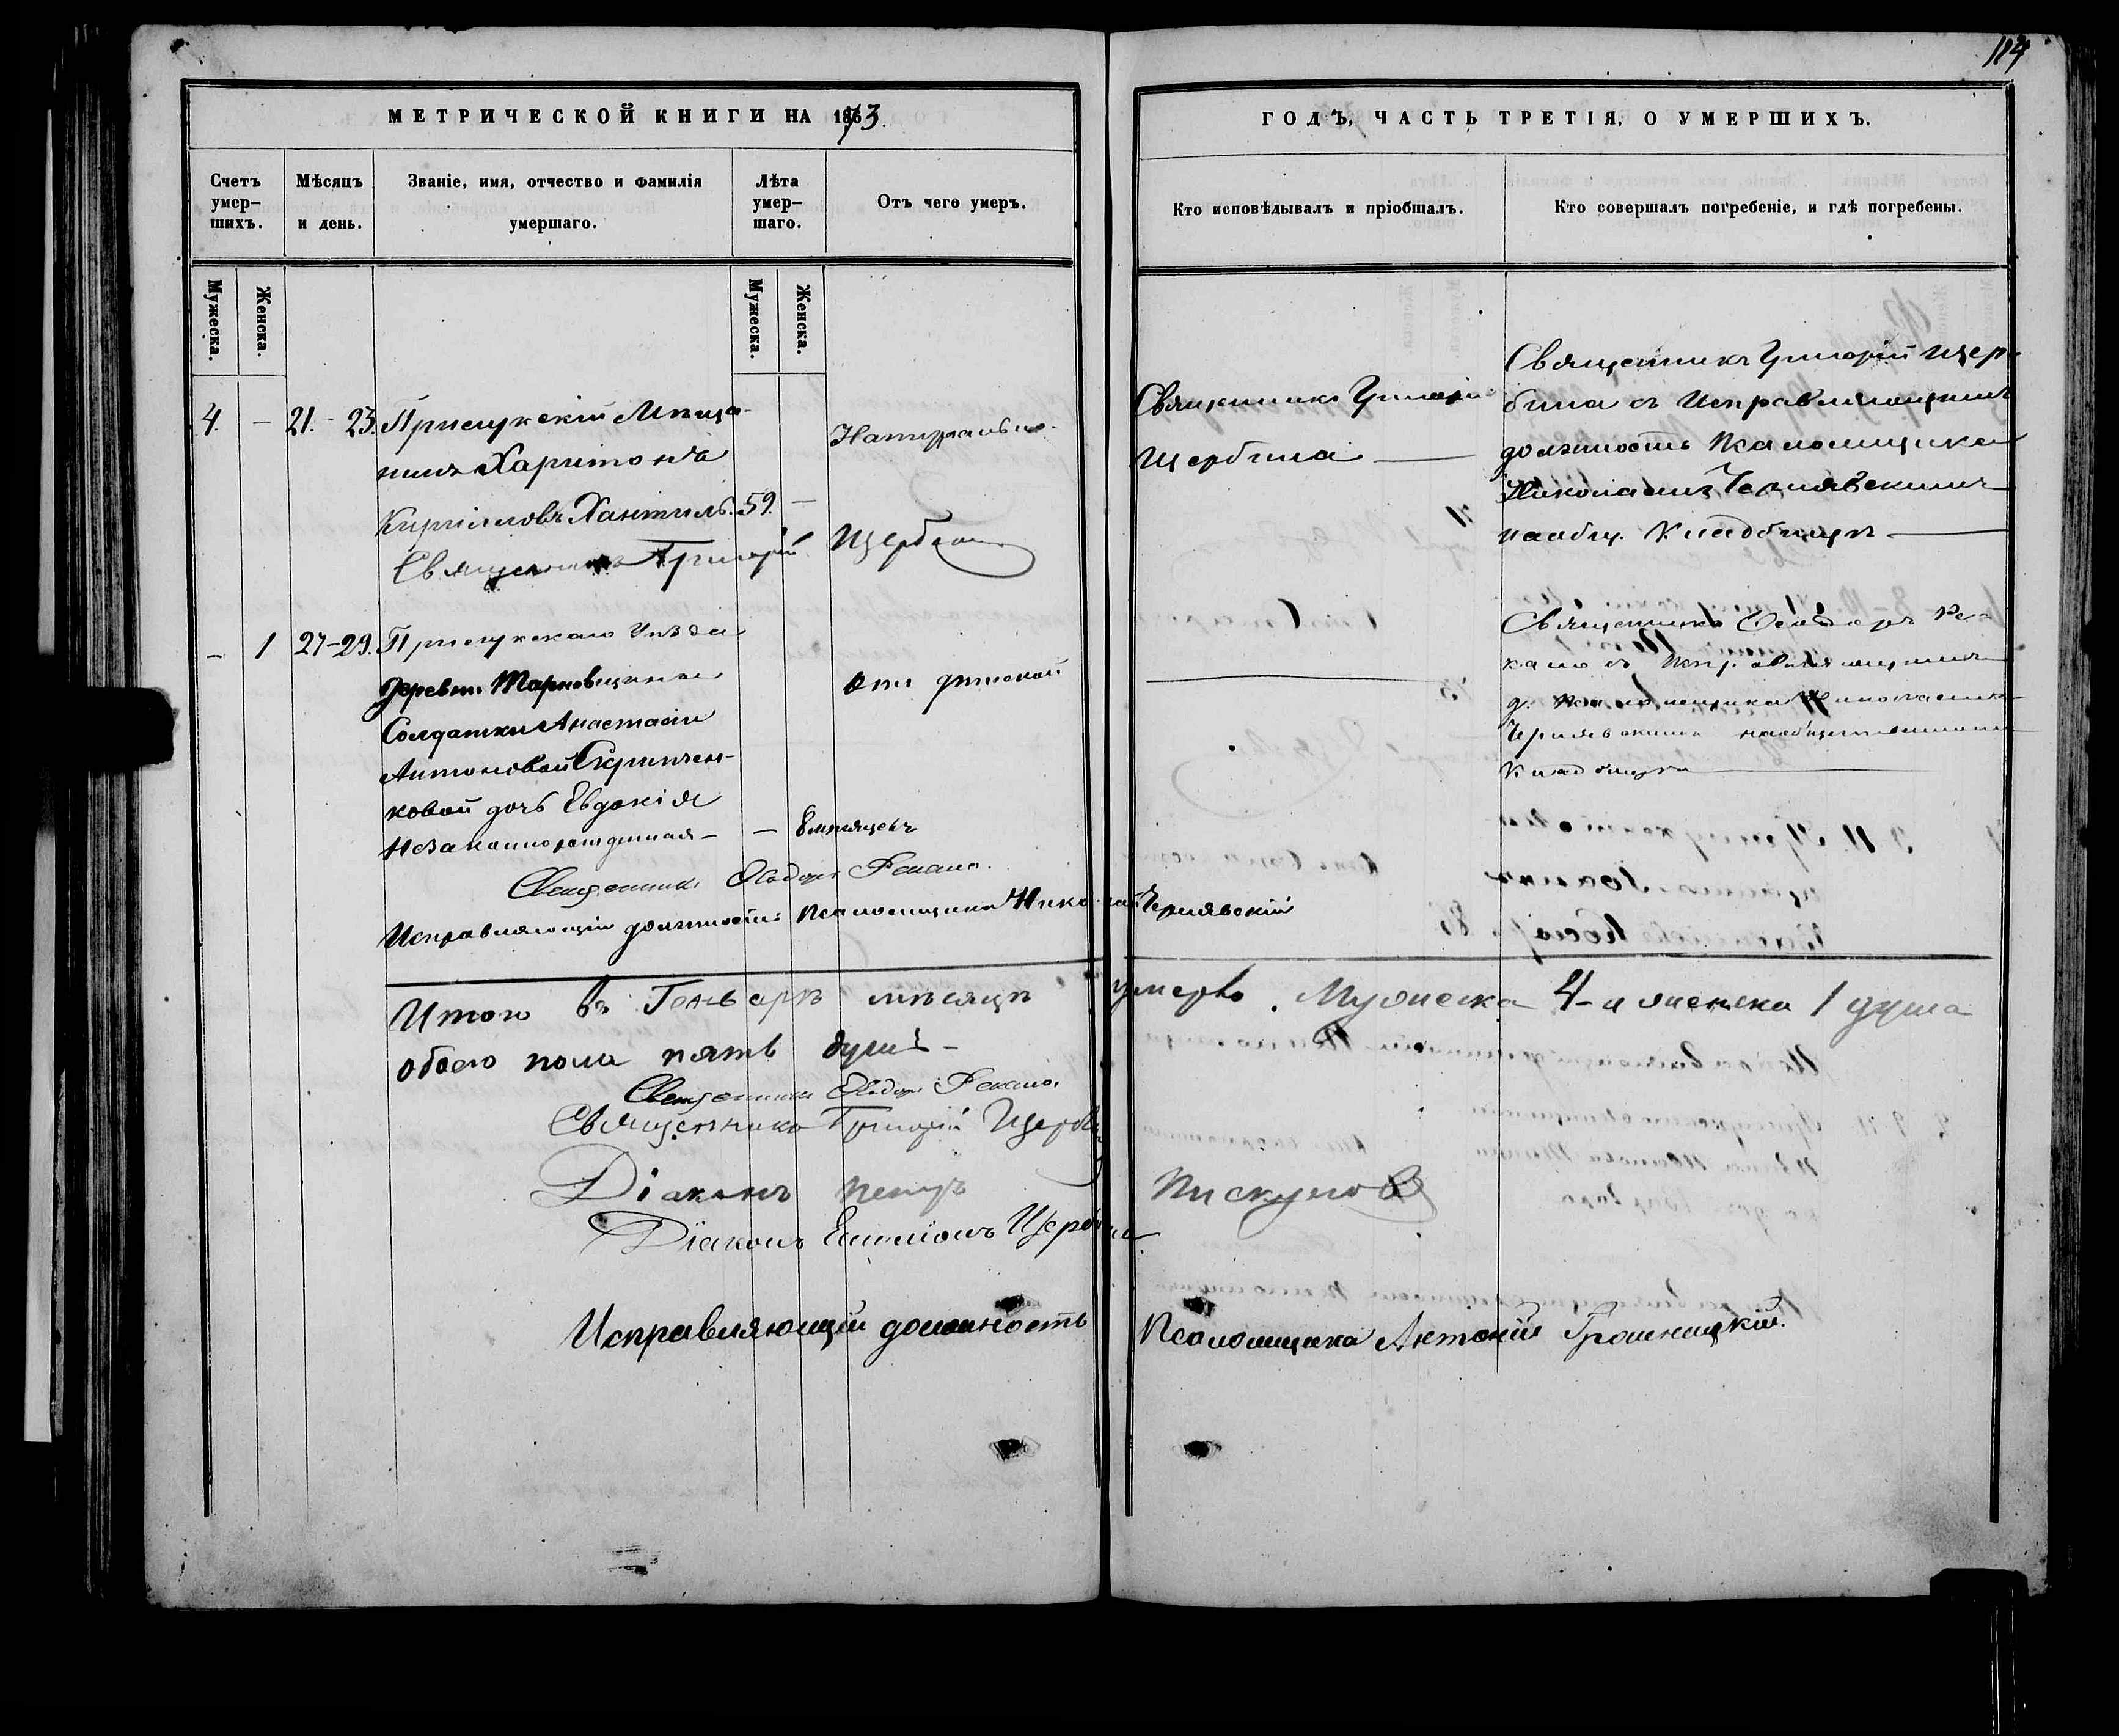 114
МЕТРИЧЕСКОЙ КНИГИ НА 1873.
ГОДЪ, ЧАСТЬ ТРЕТІЯ, О УМЕРШИХЪ.
Счетъ умер-шихъ.
Мѣсяцъ и день.
Званіе, имя, отчество и фамилія умершаго.
Лѣта умер-шаго.
Отъ чего умеръ.
Кто исповѣдывалъ и пріобщалъ.
Кто совершалъ погребеніе, и гдѣ погребены.
Мужеска.
Женска.
Мужеска.
Женска.
4. — 21.-23. Прилукскій Мѣща-
нинъ Харитонъ
Кирилловъ Хантиль. 59. —
Натурально.
Священникъ Григорій Щербина
Священникъ Григорій
Щербина —
Священникъ Григорій Щер-
бина съ Исправляющимъ
должность Псаломщика
Николаемъ Чернявскимъ
на общ. Кладбищѣ —
— 1 27-29. Прилукскаго Уѣзда
деревни Тарновщины
Солдатки Анастасіи
Антоновой Скрипчен-
ковой дочь Евдокія
Незаконнорожденная — — 8 мѣсяцевъ
отъ дѣтской
Священникъ Ѳеодоръ
съ Исправляющимъ
д. Псаломщика Николаемъ
Чернявскимъ на общественномъ
Кладбищѣ —
Священникъ Ѳеодоръ
Исправляющій должность Псаломщика Николай Чернявскій
Итого въ Генварѣ мѣсяцѣ умерло. Мужеска 4 - и женска 1 душа
обоего пола пять душъ —
Священникъ Ѳеодоръ
Священникъ Григорій Щербина
Діаконъ Петръ Пискуновъ
Діаконъ Щербина
Исправляющій должность Псаломщика Антоній